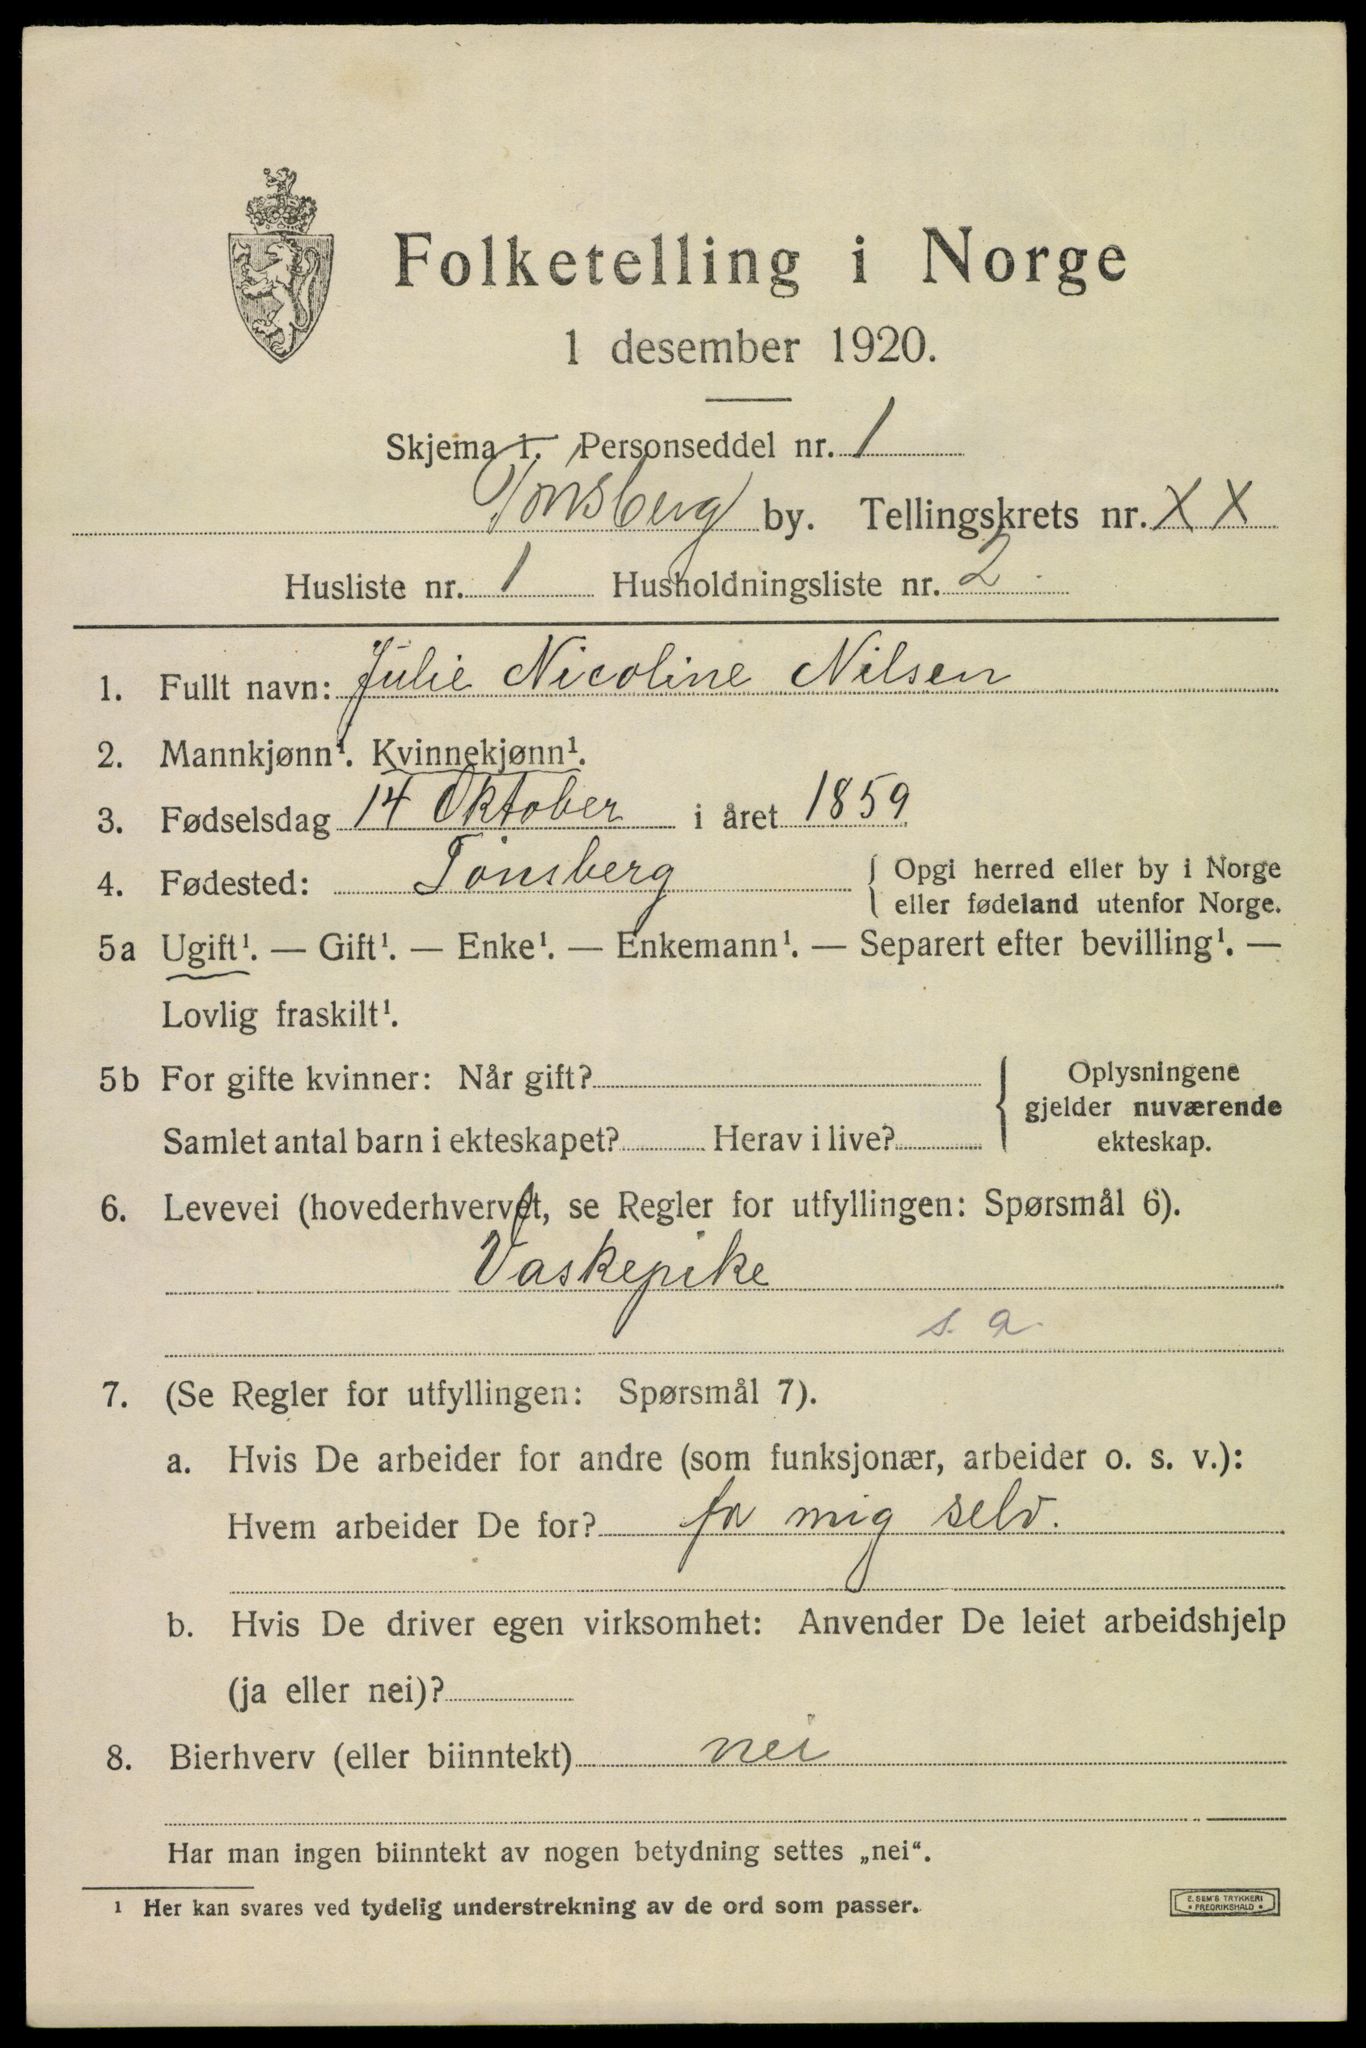 Folketelling i Norge
1 desember 1920.
Skjema 1. Personseddel nr. 1
Tønsberg by. Tellingskrets nr. XX
Husliste nr. 1 Husholdningsliste nr. 2.
1. Fullt navn: Julie Nicoline Nilsen
2. Mannkjønn¹. Kvinnekjønn¹.
3. Fødselsdag 14 Oktober i året 1859
4. Fødested: Tønsberg { Opgi herred eller by i Norge
eller fødeland utenfor Norge.
5a Ugift¹. — Gift¹. — Enke¹. — Enkemann¹. — Separert efter bevilling¹. —
Lovlig fraskilt¹.
5b For gifte kvinner: Når gift? { Oplysningene
gjelder nuværende
Samlet antal barn i ekteskapet? Herav i live? ekteskap.
6. Levevei (hovederhvervet, se Regler for utfyllingen: Spørsmål 6).
Vaskepike
s. a.
7. (Se Regler for utfyllingen: Spørsmål 7).
a. Hvis De arbeider for andre (som funksjonær, arbeider o. s. v.):
Hvem arbeider De for? for mig selv.
b. Hvis De driver egen virksomhet: Anvender De leiet arbeidshjelp
(ja eller nei)?
8. Bierhverv (eller biinntekt) nei
Har man ingen biinntekt av nogen betydning settes „nei".
¹ Her kan svares ved tydelig understrekning av de ord som passer.
E. SEM'S TRYKKERI
• FREDRIKSHALD •